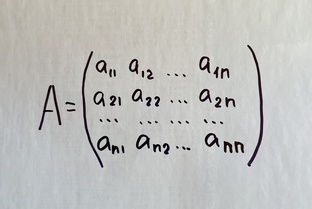 A = ( a₁₁ a₁₂ ... a₁n
a₂₁ a₂₂ ... a₂n
... ... ... ...
an₁ an₂ ... ann )